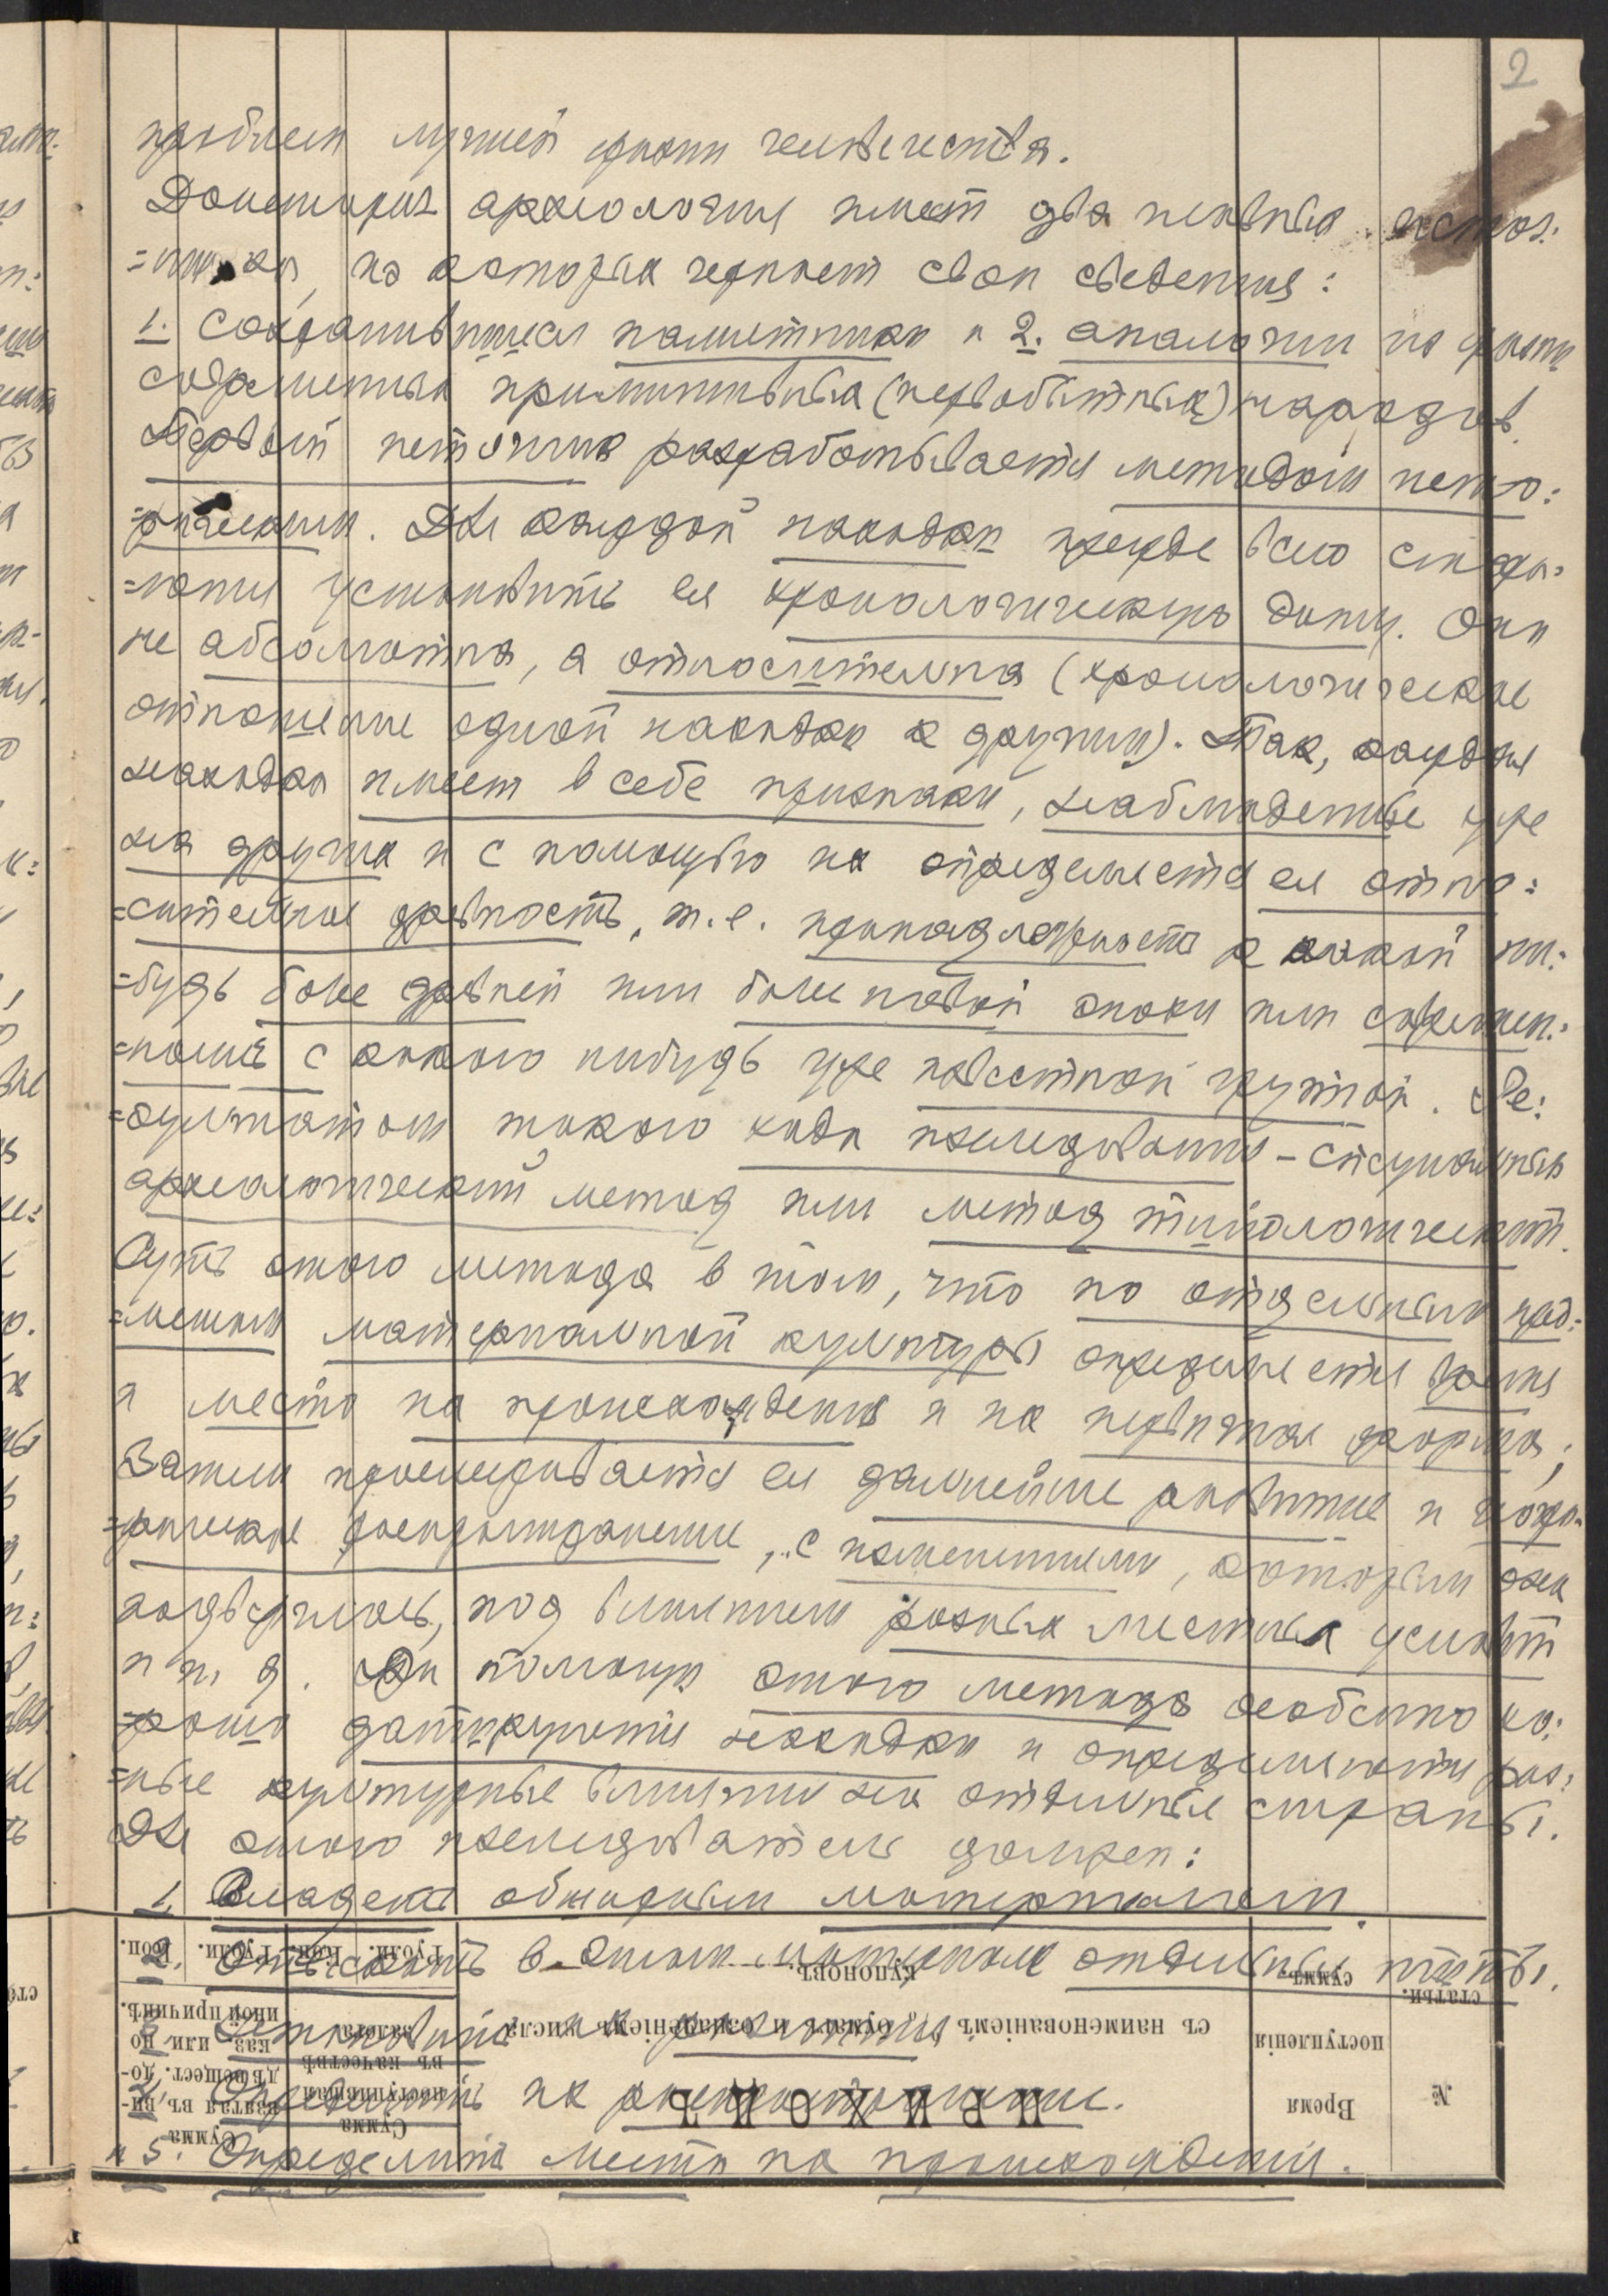 2
проблем лучшей жизни человечества.
Доистория археология имеет два главных источ:
=ника, из которых черпает свои сведения:
1. Сохранившиеся памятники и 2. аналогии из жизни
современных примитивных (первобытных) народов.
Первый источник разрабатывается методом исто:
=рическим. Для каждой находки прежде всего стара:
=ются установить ея хронологическую дату. Она
не абсолютна, а относительна (хронологическое
отношение одной находки к другим). Так, каждая
находка имеет в себе признаки, наблюденные уже
на других и с помощью их определяется ея отно:
=сительная древность, т.е. принадлежность к какой ни:
=будь более древней или более новой эпохи или современ:
=ность с какою нибудь уже известной группой. Ре:
=зультатом такого хода исследования – специальный
археологический метод или метод типологический.
Суть этого метода в том, что по отдельным пред:
=метам материальной культуры определяется время
и место их происхождения и их первичная форма;
Затем прослеживается ея дальнейшее развитие и геогра:
=фическое распространение, с изменениями, которым они
подверглись, под влиянием разных местных условий
и т. д. При помощи этого метода особенно хо:
=рошо датируются находки и определяются раз:
=ные культурные влияния на отдельные страны.
Для этого исследователь должен:
1. Владеть обширным материалом.
2. Отыскать в этом материале отдельные типы.
3. Установить их развитие.
4. Определить их распространение.
и 5. Определить место их происхождения.
ПРИХОДЪ
№ статьи.
Время поступленія суммъ.
съ наименованіемъ бумагъ и означеніемъ числа купоновъ.
Сумма поступившая въ качествѣ залога
Рубли. Коп.
Рубли. Коп.